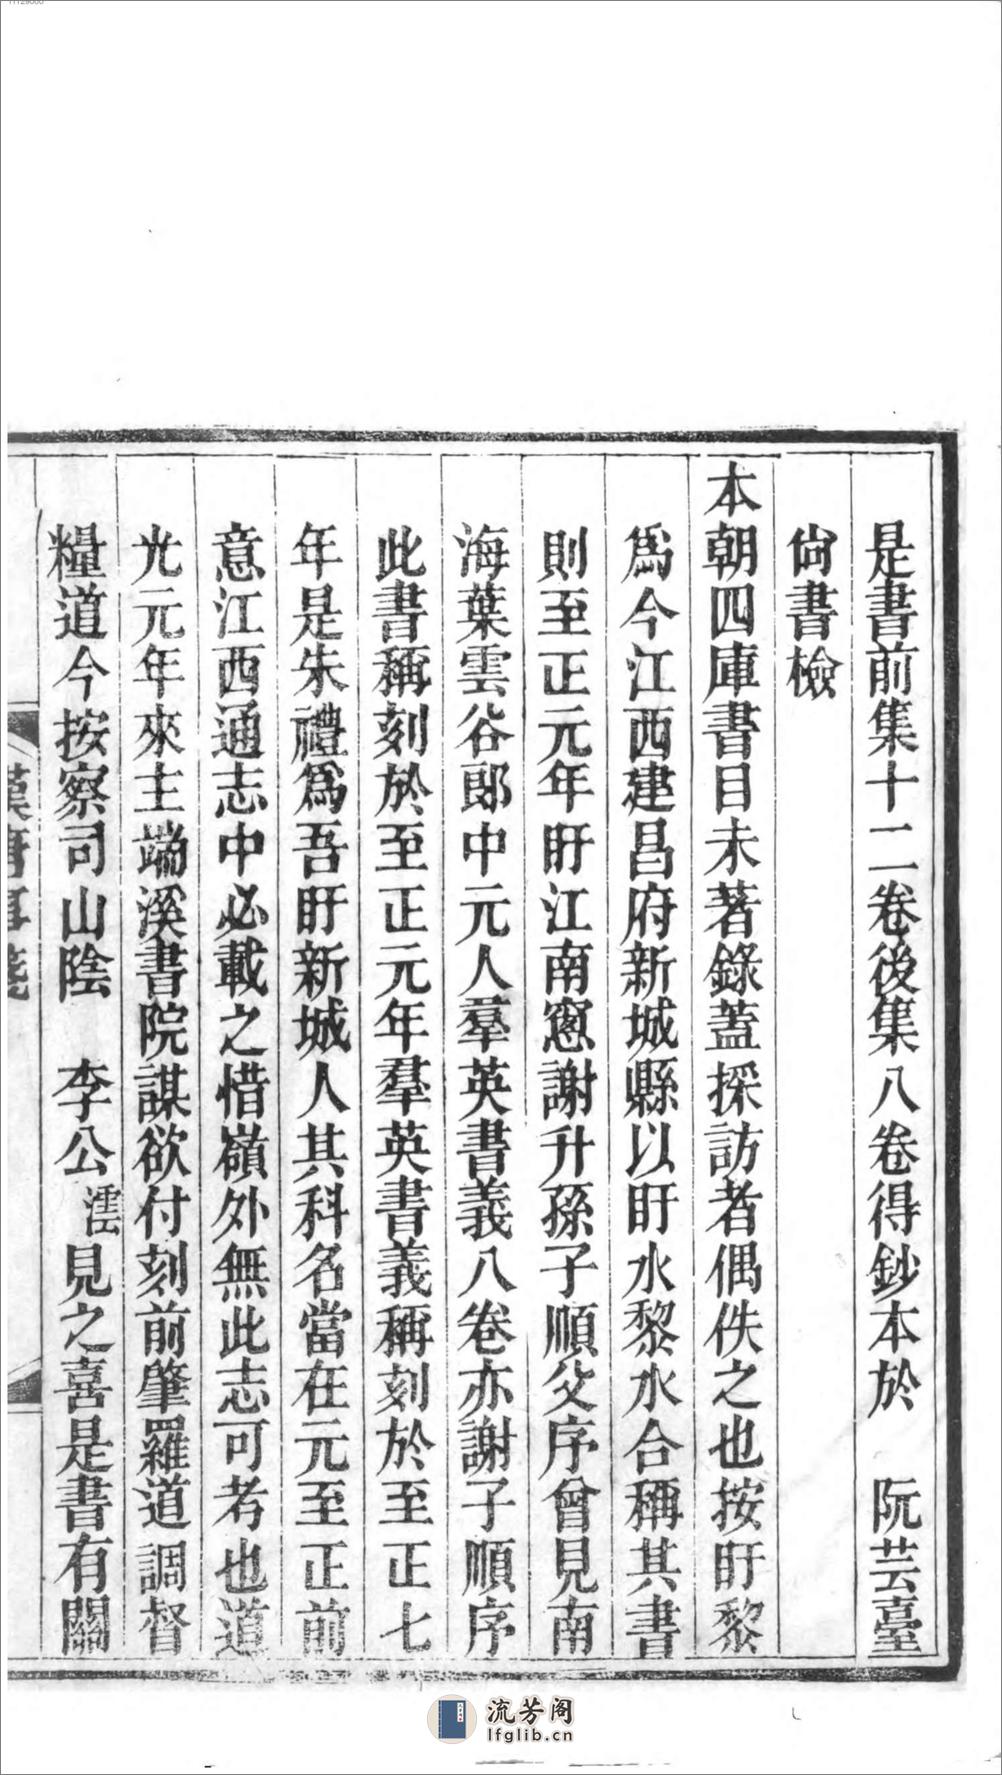 是書前集十二卷後集八卷得鈔本於　阮芸臺
尙書檢
本朝四庫書目未著錄蓋採訪者偶佚之也按盱黎
爲今江西建昌府新城縣以盱水黎水合稱其書
則至正元年盱江南窻謝升孫子順父序曾見南
海葉雲谷郞中元人羣英書義八卷亦謝子順序
此書稱刻於至正元年羣英書義稱刻於至正七
年是朱禮爲吾盱新城人其科名當在元至正前
意江西通志中必載之惜嶺外無此志可考也道
光元年來主端溪書院謀欲付刻前肇羅道調督
糧道今按察司山陰　李公澐見之喜是書有關
漢唐事箋
流芳阁
lfglib.cn